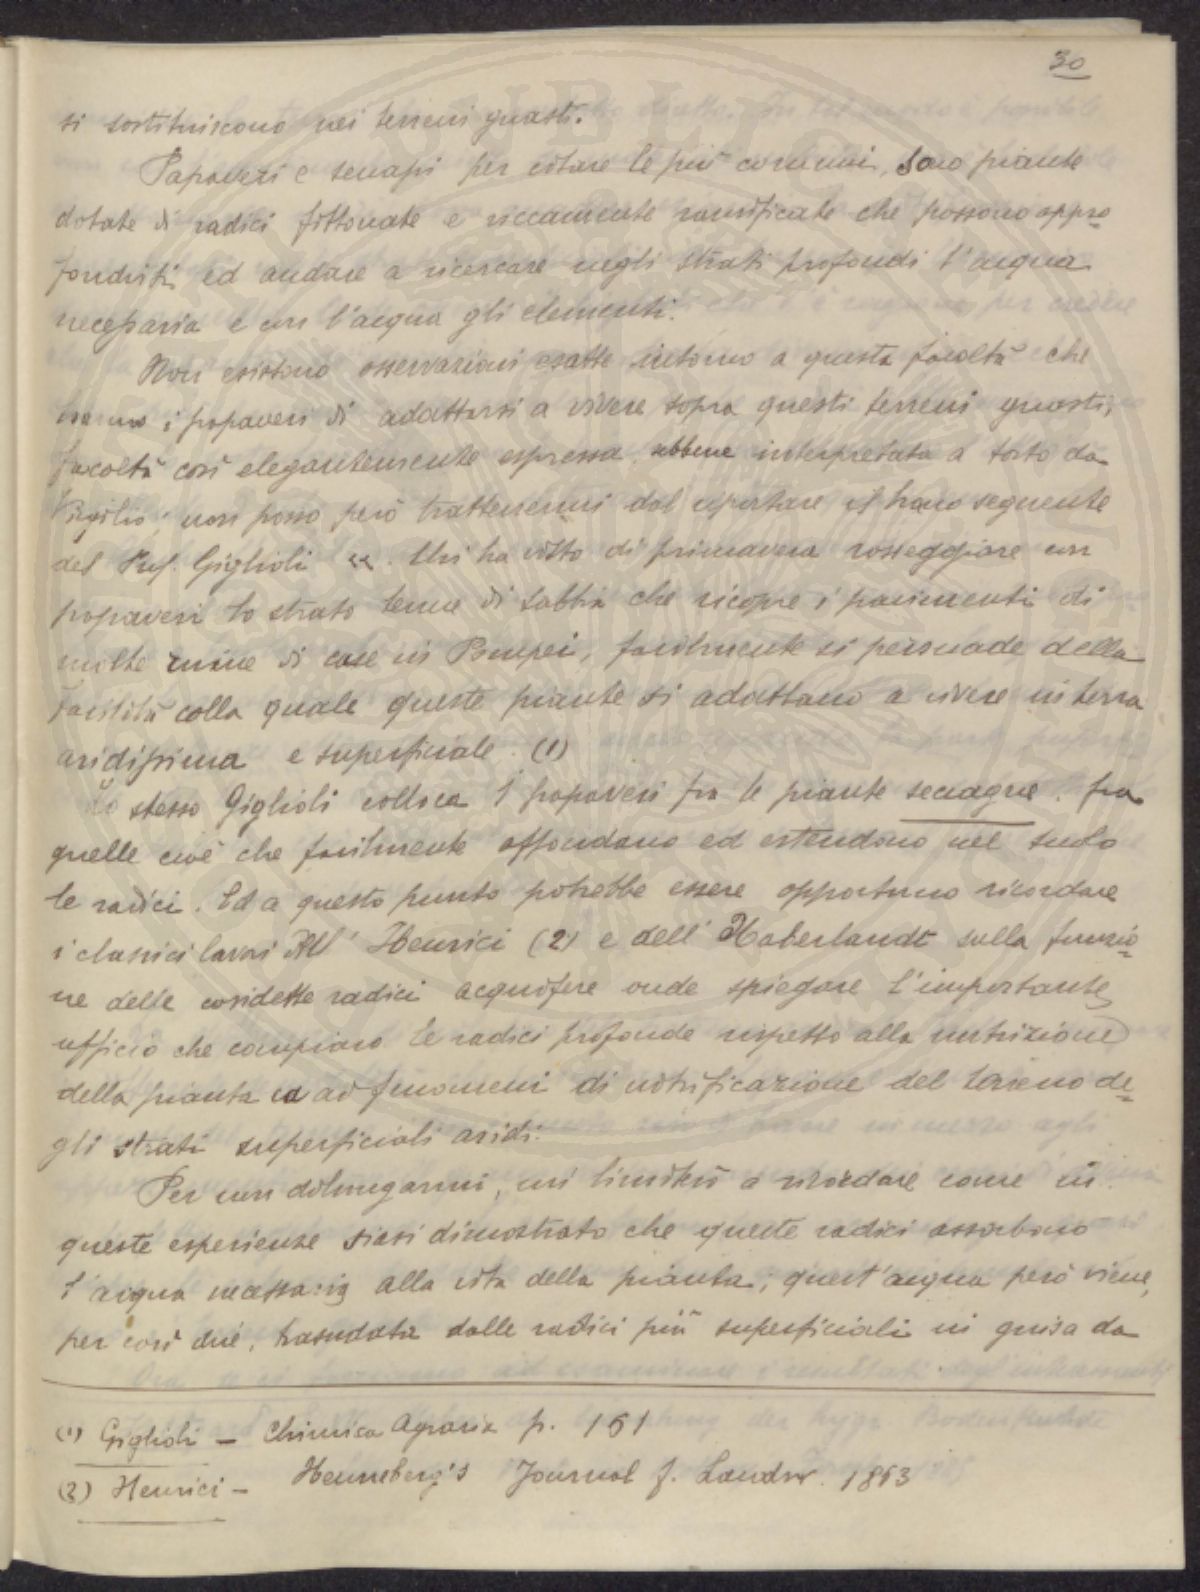 30
si sostituiscono nei terreni guasti.
Papaveri e senapi per citare le più comuni, sono piante
dotate di radici fittonate e riccamente ramificate che possono appro=
fondirsi ed andare a ricercare negli strati profondi l'acqua
necessaria e con l'acqua gli elementi.
Non esistono osservazioni esatte intorno a questa facoltà che
hanno i papaveri di adattarsi a vivere sopra questi terreni guasti,
facoltà così elegantemente espressa, sebbene interpretata a torto da
Virgilio; non posso però trattenermi dal riportare il brano seguente
del Prof. Giglioli «. Chi ha visto di primavera rosseggiare con
papaveri lo strato tenue di sabbia che ricopre i pavimenti di
molte ruine di case in Pompei, facilmente si persuade della
facilità colla quale queste piante si adattano a vivere in terra
aridissima e superficiale. (1)
Lo stesso Giglioli colloca i papaveri fra le piante seccagne. fra
quelle cioè che facilmente affondano ed estendono nel suolo
le radici. Ed a questo punto potrebbe essere opportuno ricordare
i classici lavori dell' Henrici (2) e dell' Haberlandt sulla funzio=
ne delle cosidette radici acquifere onde spiegare l'importante
ufficio che compiono le radici profonde rispetto alla nutrizione
della pianta ed ai fenomeni di nitrificazione del terreno de=
gli strati superficiali aridi.
Per non dilungarmi, mi limiterò a ricordare come in
queste esperienze siasi dimostrato che queste radici assorbono
l'acqua necessaria alla vita della pianta; quest'acqua però viene,
per così dire, trasudata dalle radici più superficiali in guisa da
(1) Giglioli – Chimica Agraria p. 161
(2) Henrici – Henneberg's Journal f. Landw. 1863